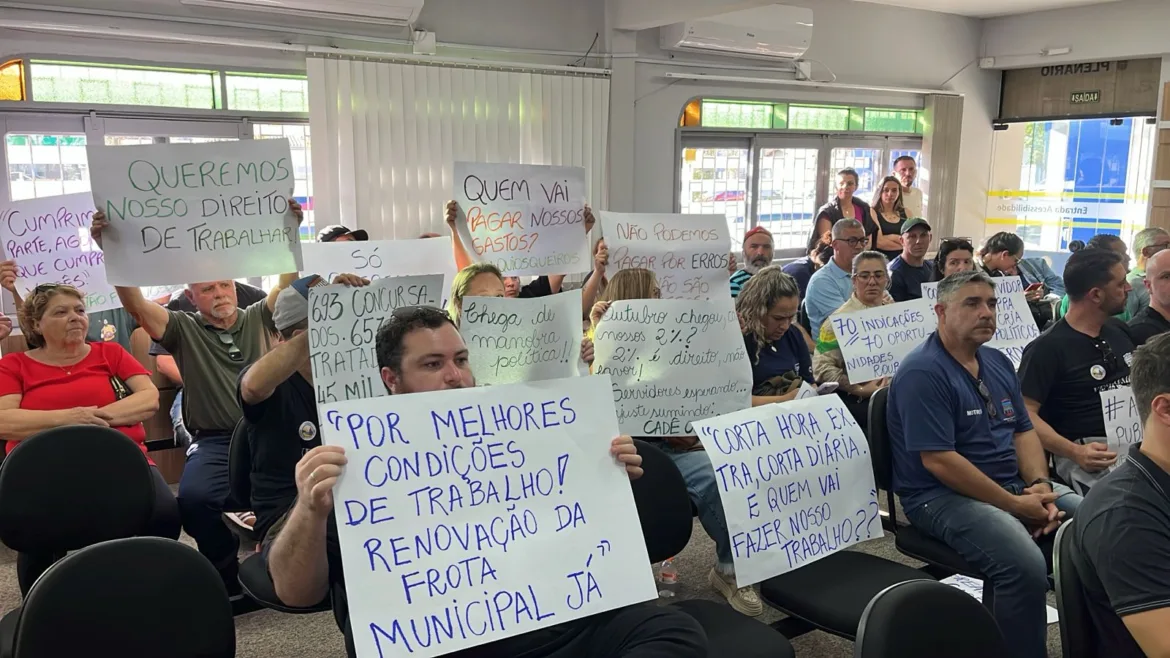 PLENÁRIO
SAÍDA
Entrada Acessibilidade
"CUMPRIM
PARTE, AG
QUE CUMPR
QUEREMOS
NOSSO DIREITO
DE TRABALHAR!
QUEM VAI
PAGAR NOSSOS
GASTOS?
NÃO PODEMOS
PAGAR POR ERROS
NÃO SÃO
SÓ
693 CONCURSA-
DOS. 65
TRATAD
45 MIL
Chega de
manobra
política!!
Outubro chegou, c
nossos 2%?
2% é direito, não
favor!
Servidores esperando...
juste sumindo!
CADÊ O
70 INDICAÇÕES
70 OPORTU
NIDADES
ROUBA
VIDOR
CRIA
POLÍTICA
"POR MELHORES
CONDIÇÕES
DE TRABALHO!
RENOVAÇÃO DA
FROTA
MUNICIPAL JÁ"
"CORTA HORA EX-
TRA, CORTA DIÁRIA.
E QUEM VAI
FAZER NOSSO
TRABALHO??"